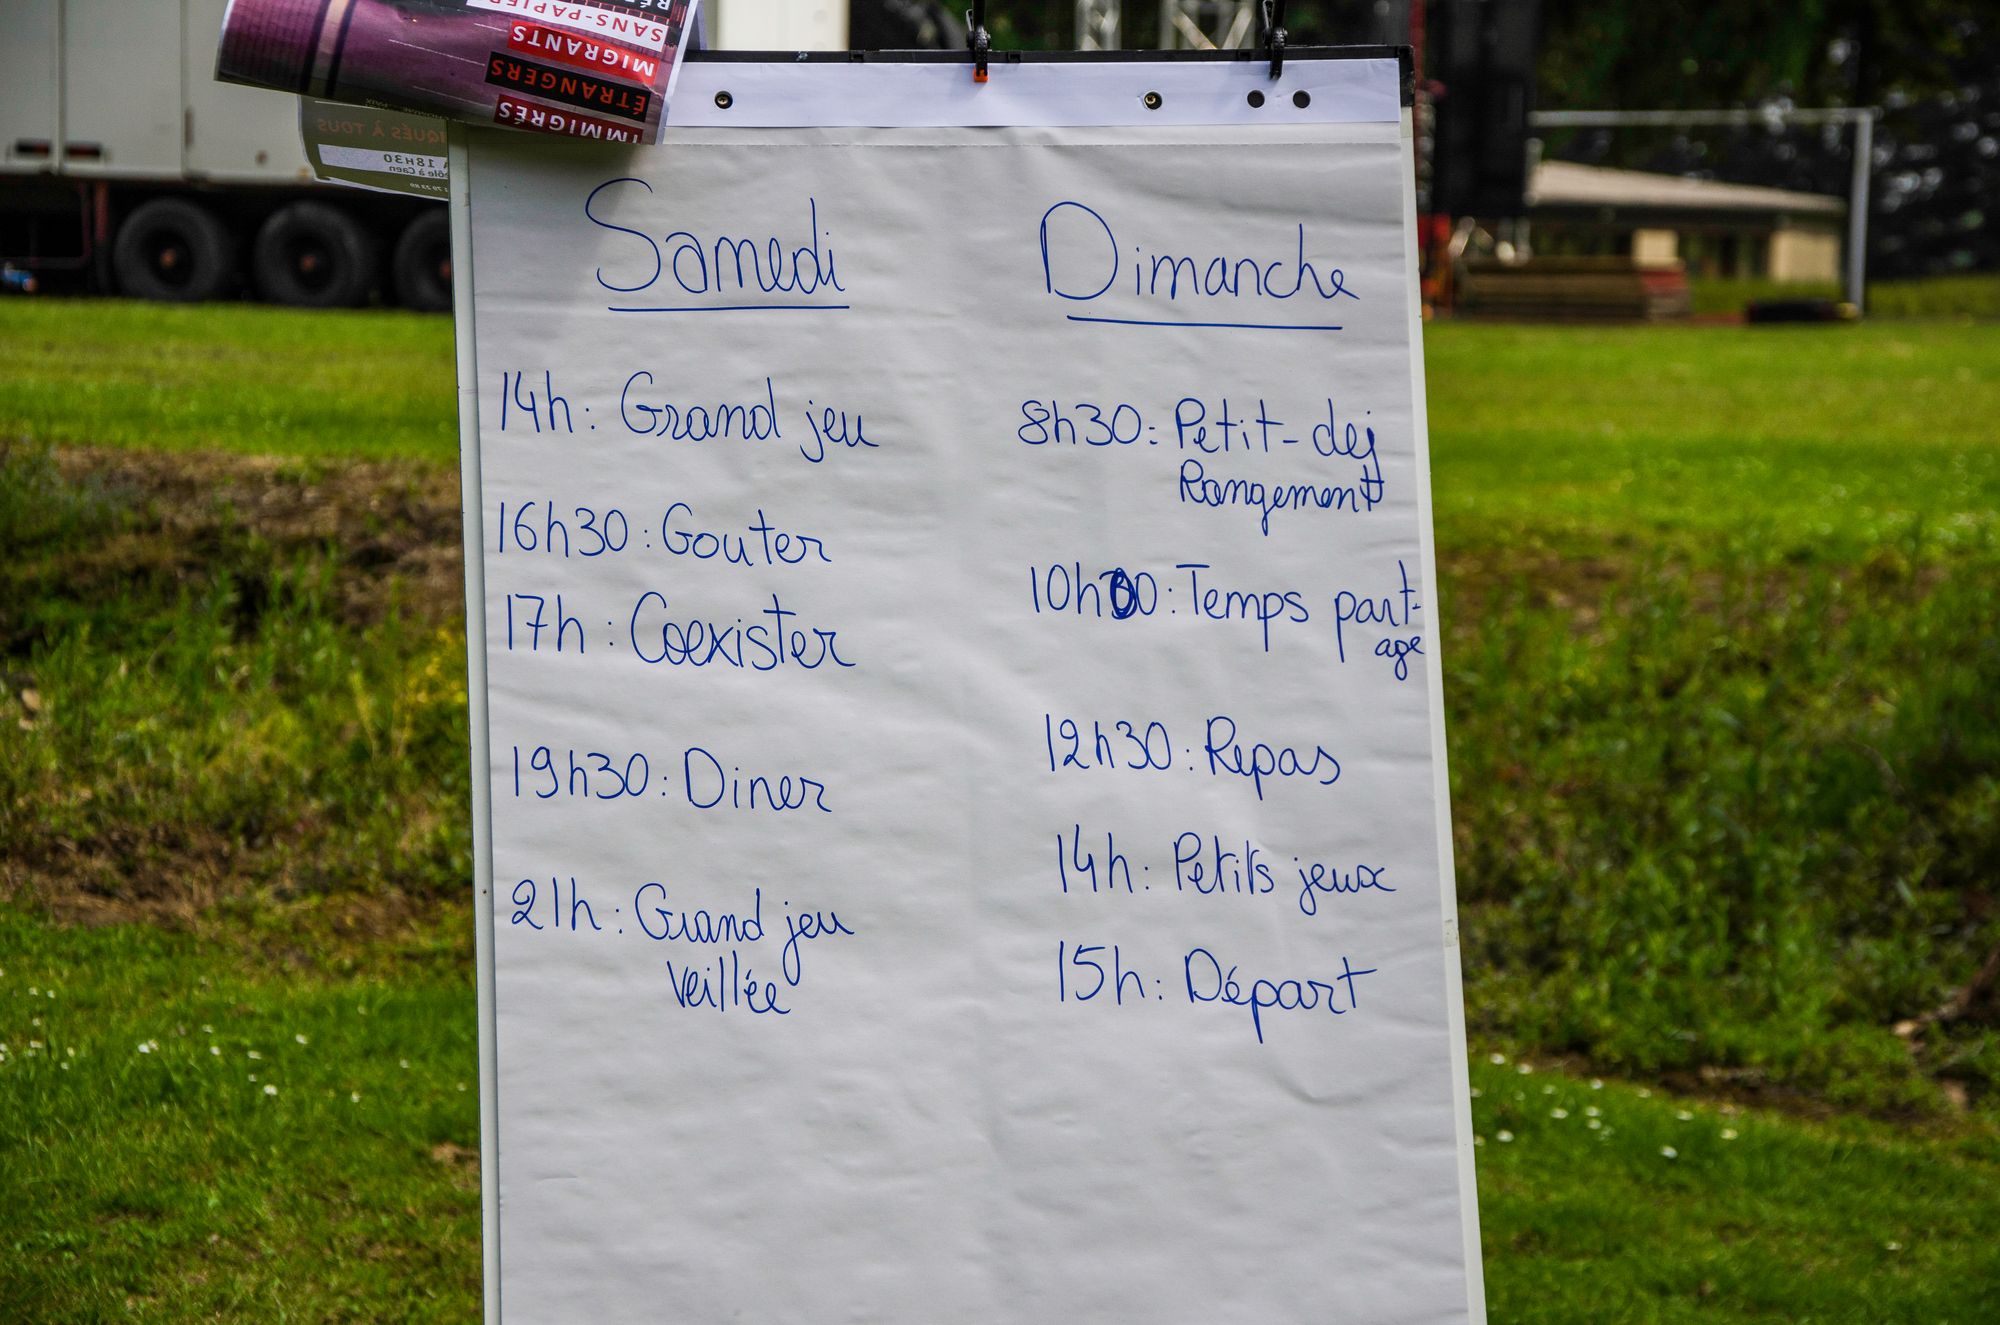 SANS-PAPIER
MIGRANTS
ÉTRANGERS
IMMIGRÉS
IQUÉS À TOUS
À 18H30
ôle à Caen
Samedi
14h : Grand jeu
16h30 : Gouter
17h : Coexister
19h30 : Diner
21h : Grand jeu
Veillée
Dimanche
8h30 : Petit-dej
Rangement
10h00 : Temps part-
age
12h30 : Repas
14h : Petits jeux
15h : Départ